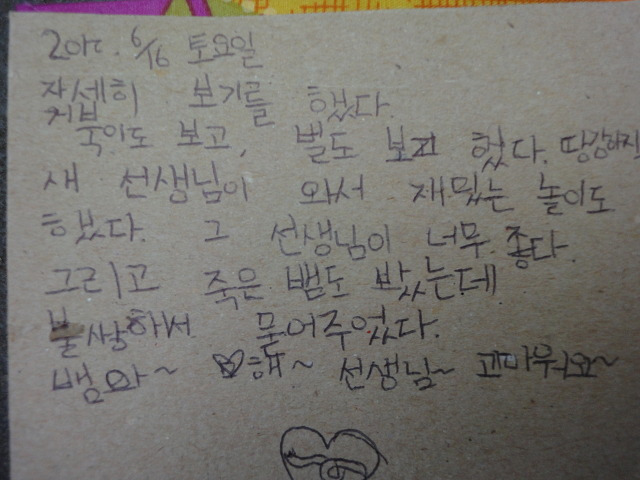 6/16 토요일
자세히 보기를 했다.
보고, 벌도 보고 했다. 땅강아지
새 선생님이 와서 재밌는 놀이도
했다. 그 선생님이 너무 좋다.
그리고 죽은 뱀도 봤는데
불쌍해서 묻어주었다.
뱀와~ ♡해~ 선생님~ 고마워요~